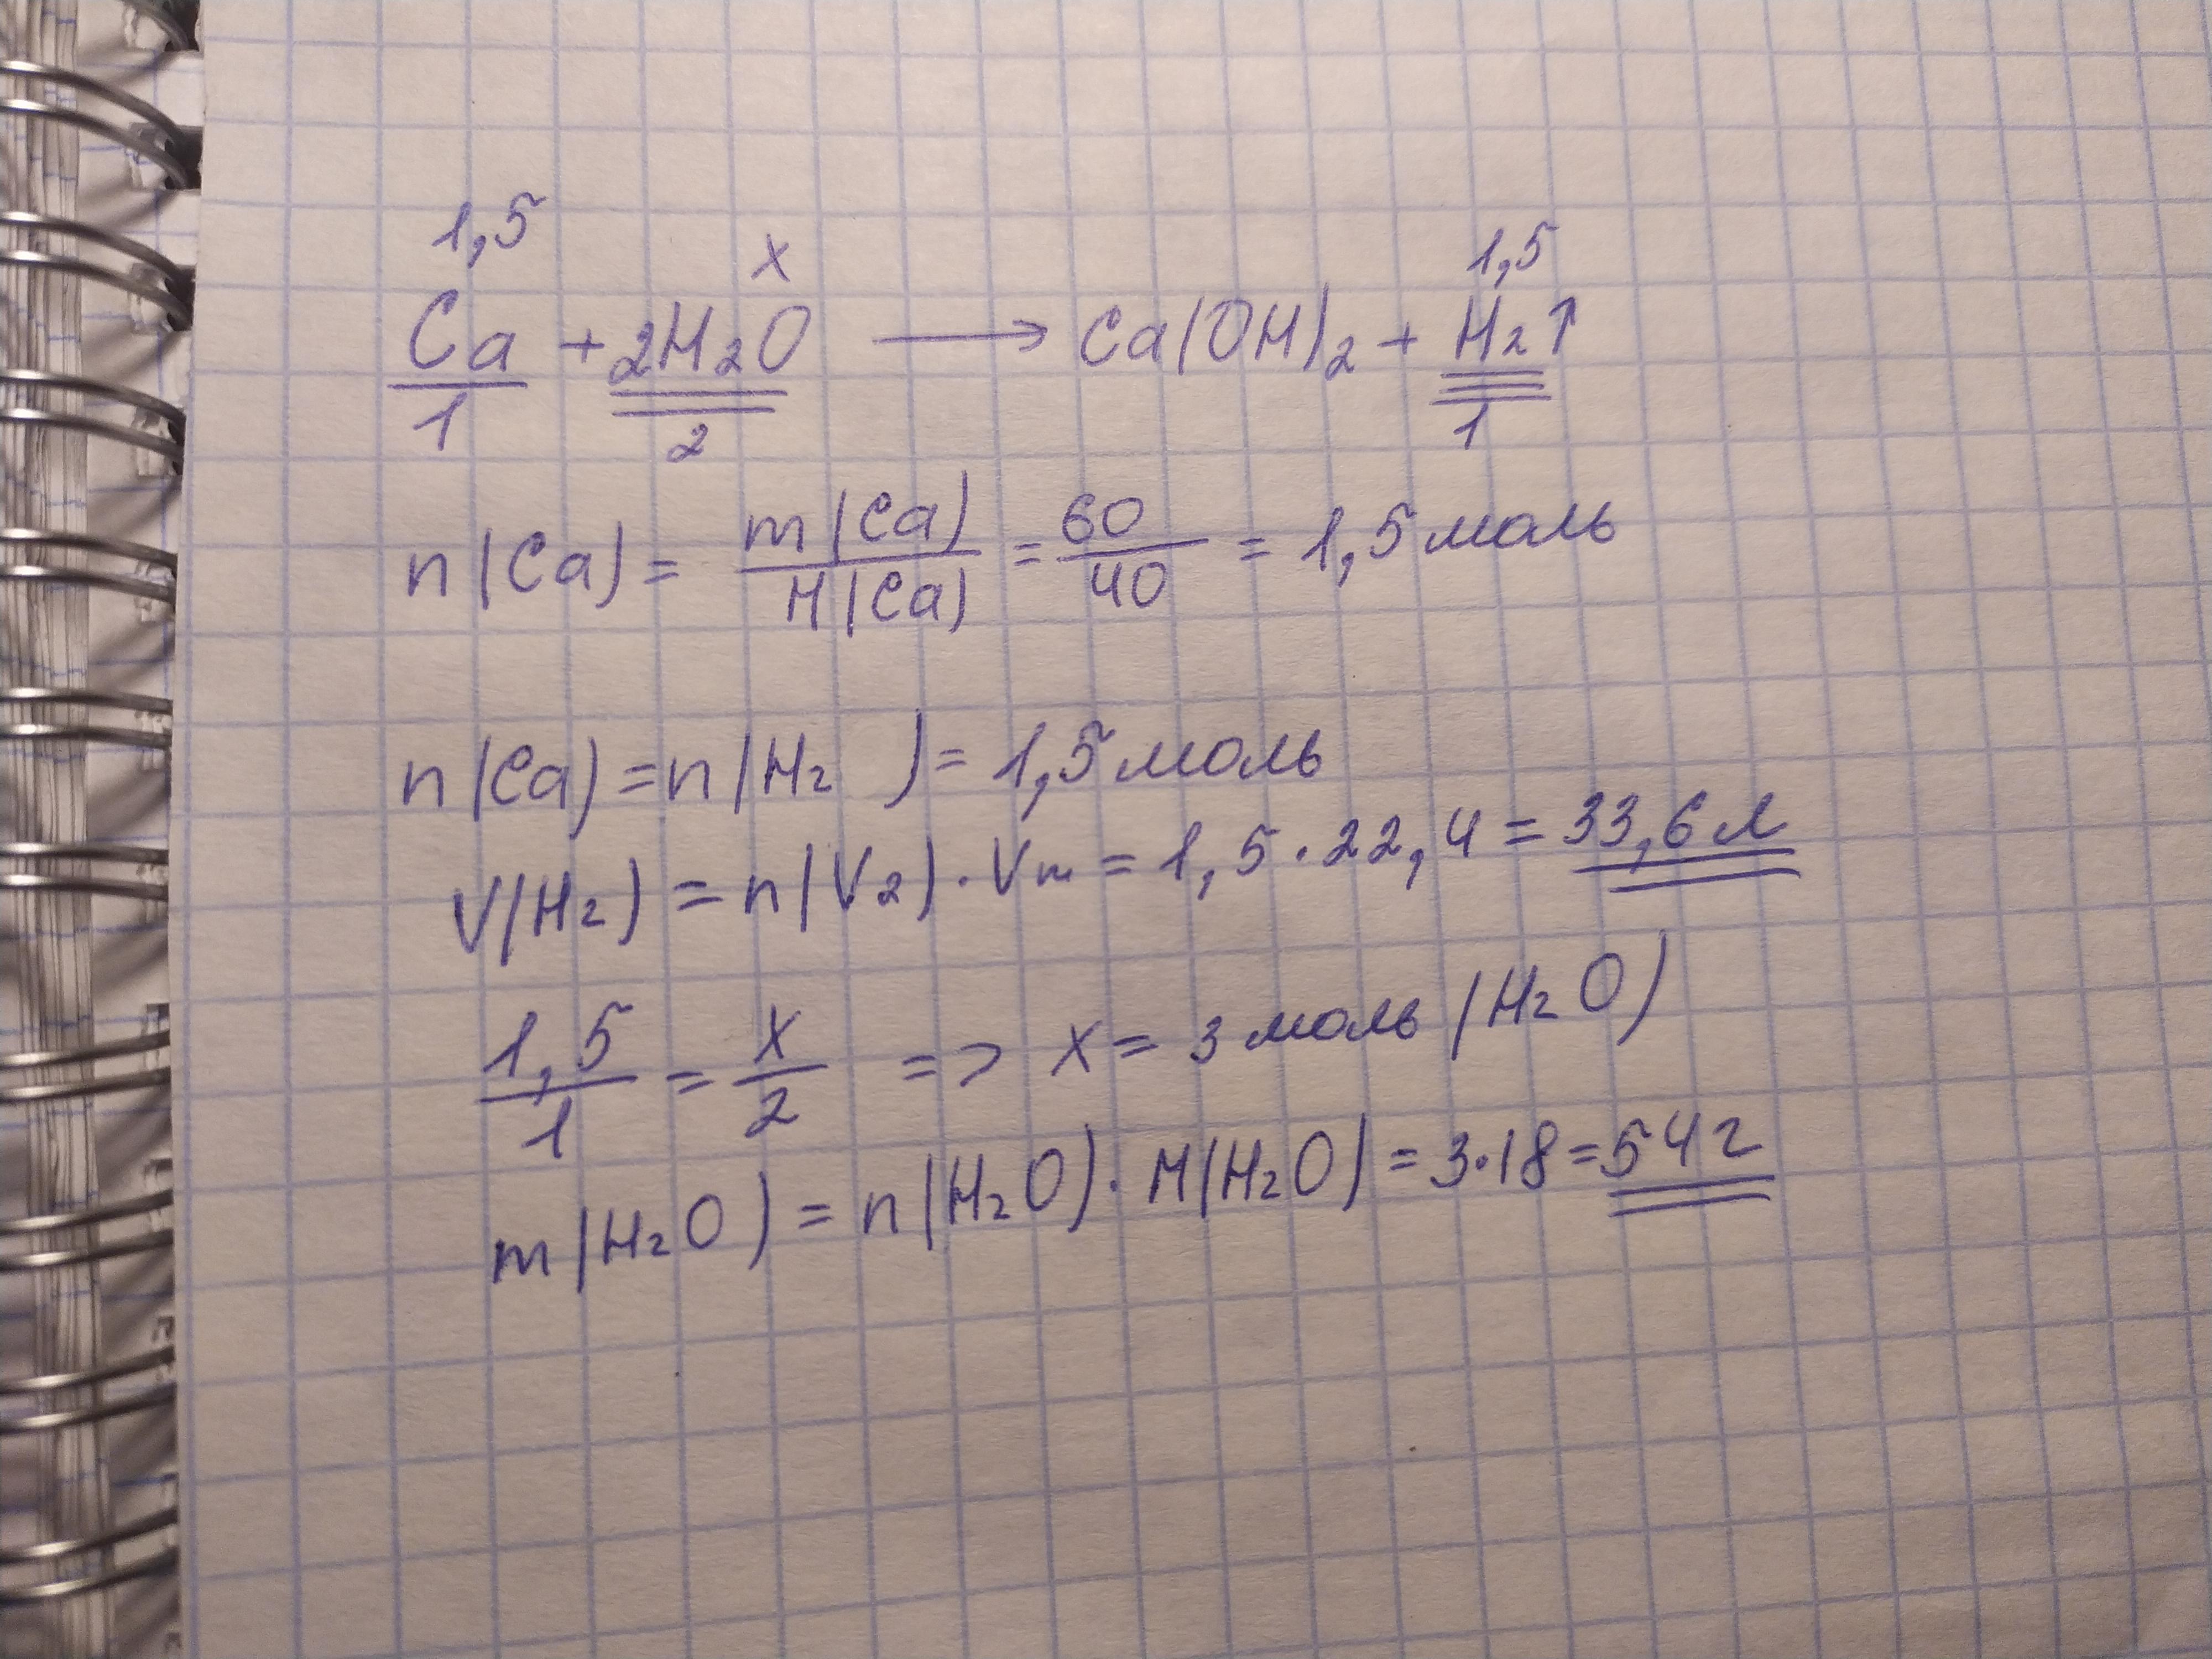 1,5 x 1,5
Ca + 2H₂O ⟶ Ca(OH)₂ + H₂↑
1 2 1
n(Ca) = m(Ca)/M(Ca) = 60/40 = 1,5 моль
n(Ca) = n(H₂ ) = 1,5 моль
V(H₂) = n(V₂) · Vm = 1,5 · 22,4 = 33,6 л
1,5/1 = x/2 => x = 3 моль (H₂O)
m(H₂O) = n(H₂O) · M(H₂O) = 3·18 = 54 г